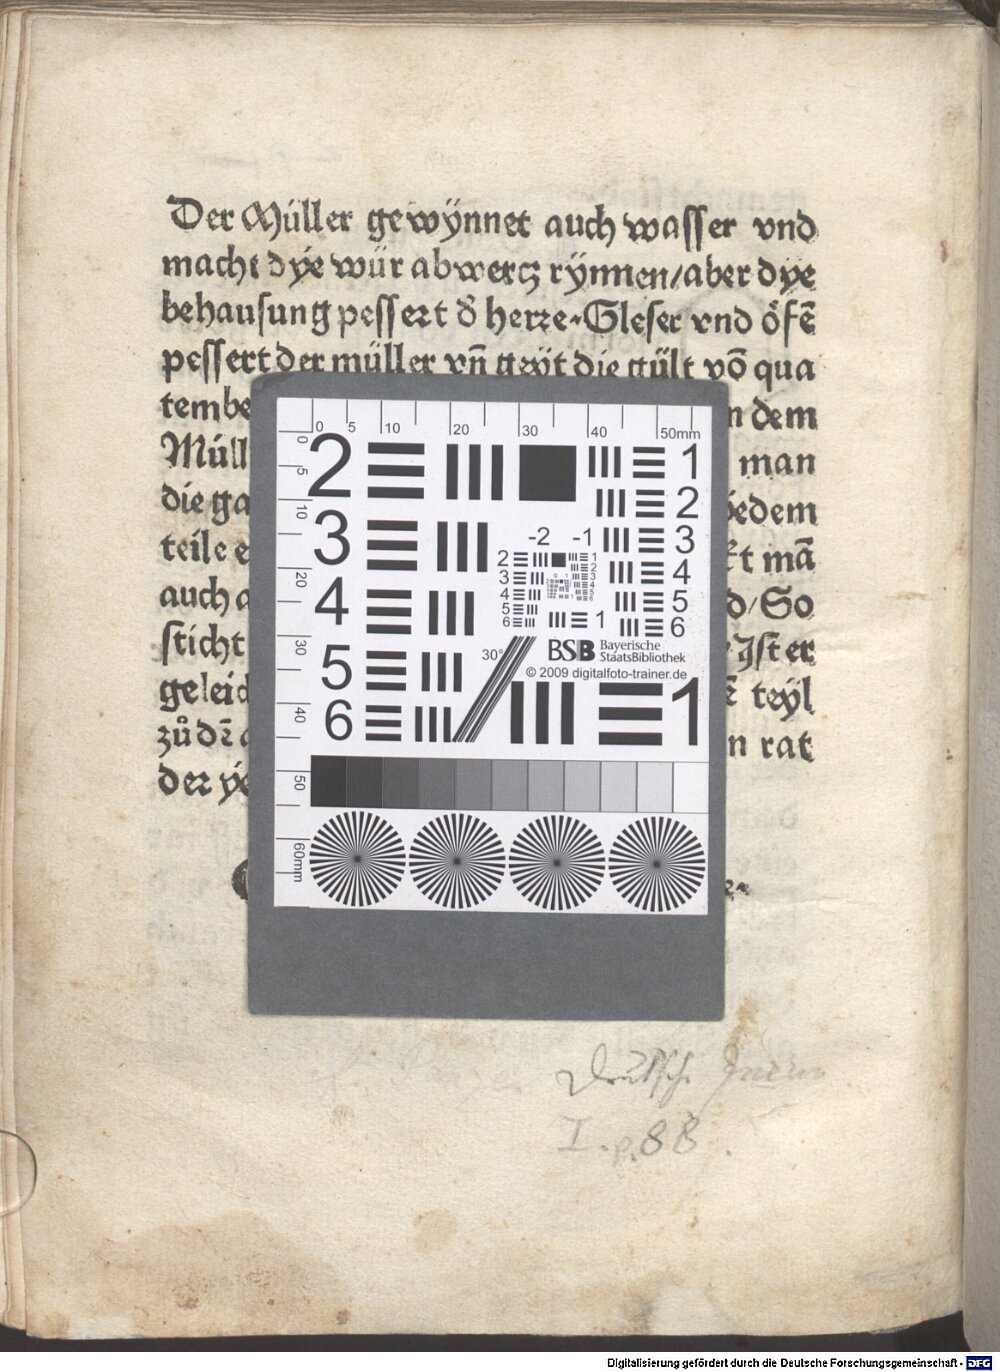 Der Müller gewÿnnet auch wasser vnd
macht dÿe wür abwertz rÿnnen/aber dÿe
behausung pessert d̕ herre. Gleser vnd öfē
pessert der müller vn̄ geÿt die gült vō qua
tembe n dem
Müll man
die ga jedem
teile e t mā
auch a d/So
sticht Jst er
geleid teÿl
zůdē n rat
der ÿe
0 5 10 20 30 40 50mm
0 5 10 20 30 40 50 60mm
2 1
2
3 -2 -1 3
4 4
5
6
5
6 1
30°
BSB Bayerische
StaatsBibliothek
© 2009 digitalfoto-trainer.de
Deutsche
I. p. 88.
Digitalisierung gefördert durch die Deutsche Forschungsgemeinschaft - DFG